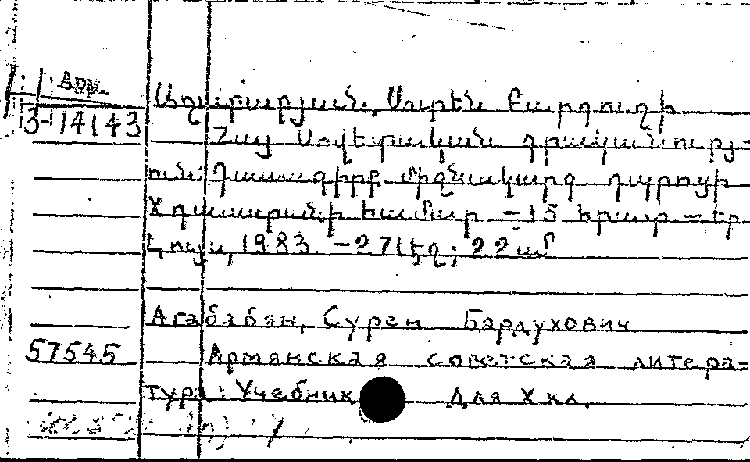 Арм.
3-14143
Աղաբաբյան, Սուրեն Բարդուղի
Հայ Սովետական գրականությ-
ուն: Դասագիրք միջնակարգ դպրոցի
X դասարանի համար. - 15 հրատ. - Եր.
Լույս, 1983. - 271 էջ; 22 սմ
Агабабян, Сурен Бардухович
57545 Армянская советская литера-
тура: Учебник для X кл.